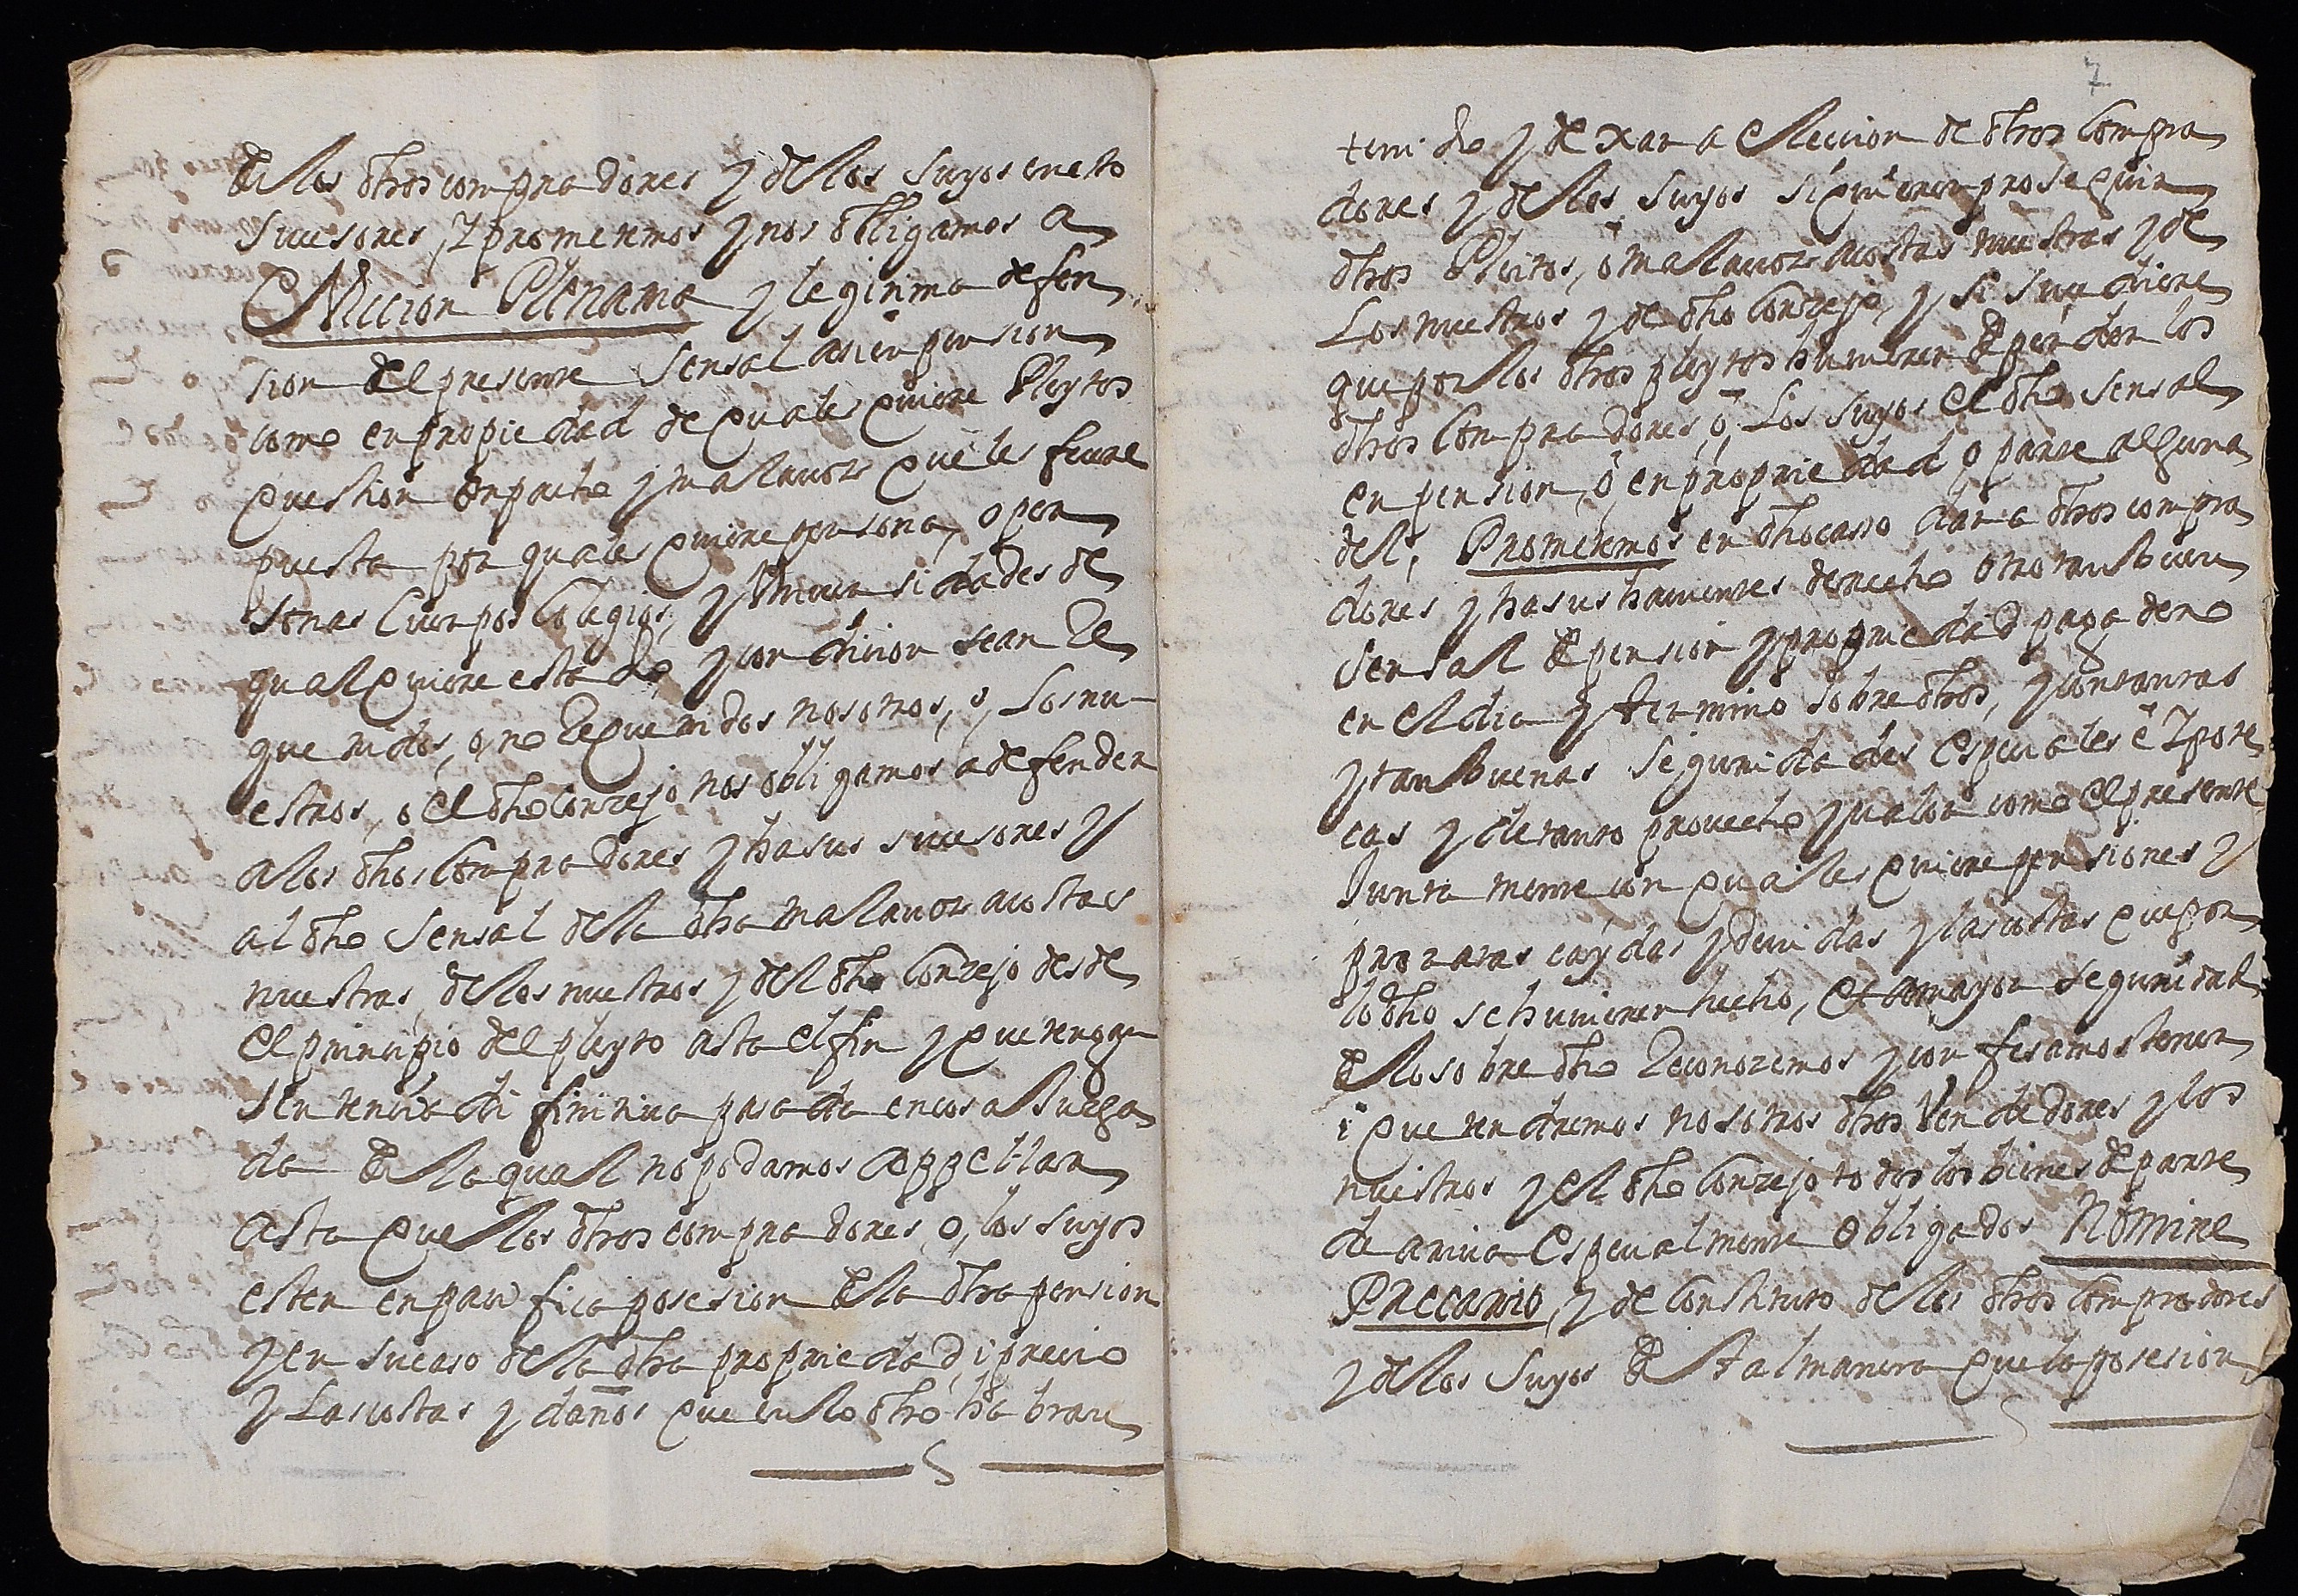 de los dhos compradores y de los suyos en esto
sucesores, y prometemos y nos obligamos a
Eviccion Plenaria y legitima defen
sion del presente sensal asi en pension
como en propiedad de qualesquiere Pleytos
question enpacho y mala voz que les fuere
puesta por qualesquiere persona, o per
sonas Cuerpos Colegios, y Universidades de
qualquiere estado, y condicion sean Re
queridos, o, no Requeridos nosotros, o, Los nu-
estros, o el dho Conzejo nos obligamos a defender
a los dhos Compradores y ha sus sucesores y
al dho sensal de la dha mala voz a costas
nuestras, de los nuestros y del dho Conzejo desde
el principio del pleyto asta el fin y que tenga
sentencia difinitiva pasada en cosa Juzga
da de la qual no podamos appellar
asta que los dhos compradores, o, los suyos
esten en pacifica posesion de la dha pension
y en su caso de la dha propriedad, i precio
y Las costas y daños que en lo dho habran
7
tenido y dexar a eleccion de dhos Compra
dores y de los suyos si quieren proseguir
dhos Pleitos, o mala voz a costas nuestras y de
Los nuestros y de dho Conzejo, y si sucediere
que por los dhos pleytos huvieren de perder los
dhos Compradores, o, Los suyos el dho sensal
en pension, o en propriedad o parte alguna
del, Prometemos en dho caso dar a dhos compra
dores y ha sus havientes derecho otro tan buen
sensal de pension y propriedad pagadero
en el dia y termino sobredhos, y con tantas
y tan buenas seguridades especiales è Ipote
cas y de tanto provecho y valor como el presente
Juntamente con qualesquiere pensiones y
prorratas caydas y devidas y las costas que por
lo dho se huvieren hecho, et a mayor seguridad
de lo sobredho Reconozemos y confesamos tener
i que tendremos nosotros dhos Vendedores y los
nuestros y el dho Conzejo todos los bienes de parte
de arriva especialmente obligados Nomine
Precario, y de Constituto de los dhos Compradores
y de los suyos de tal manera que la posesion